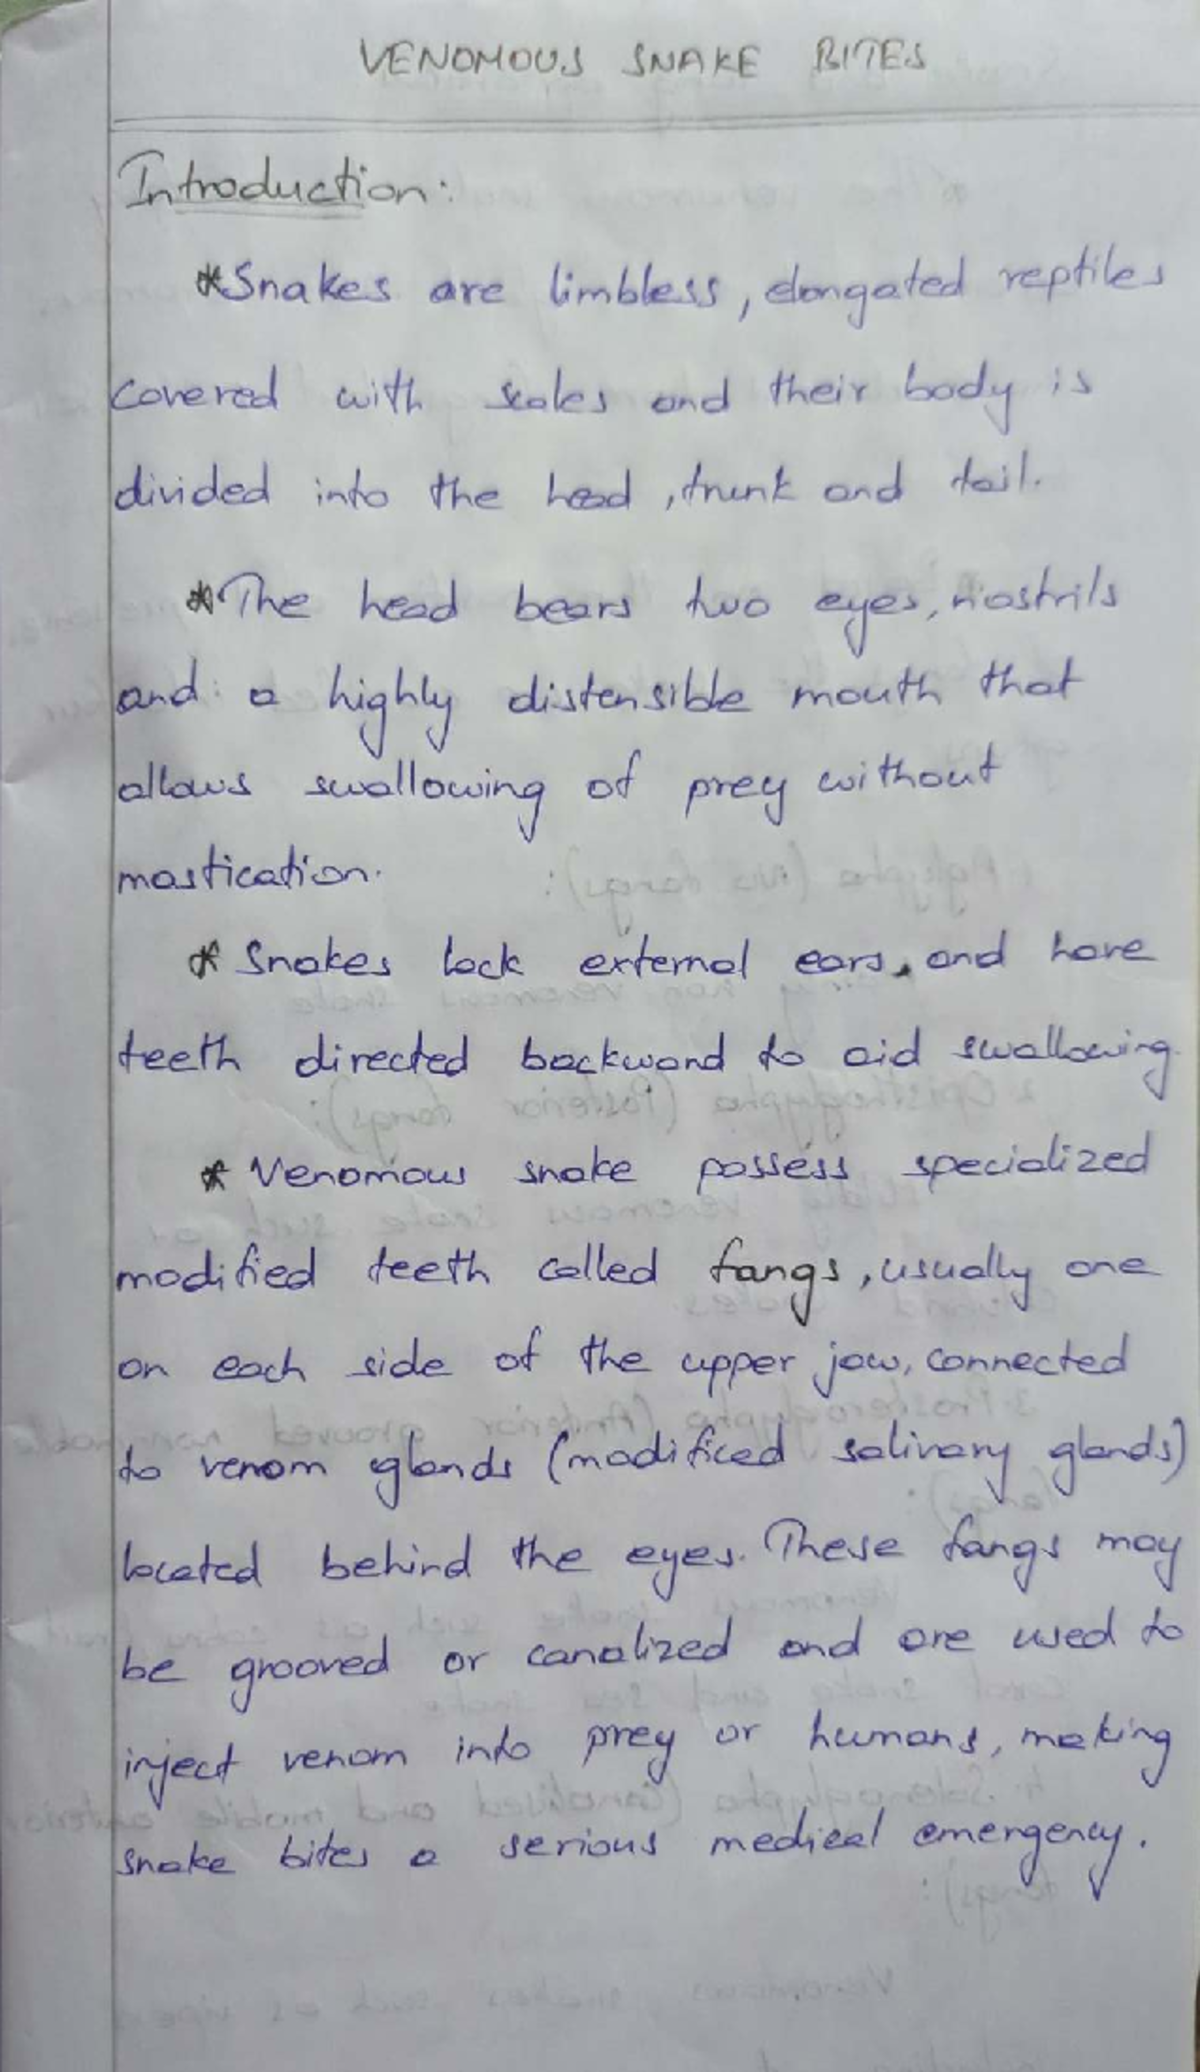 VENOMOUS SNAKE BITES
Introduction:
*Snakes are limbless, elongated reptiles
covered with scales and their body is
divided into the head, trunk and tail.
*The head bears two eyes, nostrils
and a highly distensible mouth that
allows swallowing of prey without
mastication.
* Snakes lack external ears, and have
teeth directed backward to aid swallowing.
* Venomous snake possess specialized
modified teeth called fangs, usually one
on each side of the upper jaw, connected
to venom glands (modificed salivary glands)
located behind the eyes. These fangs may
be grooved or canalized and are used to
inject venom into prey or humans, making
snake bites a serious medical emergency.